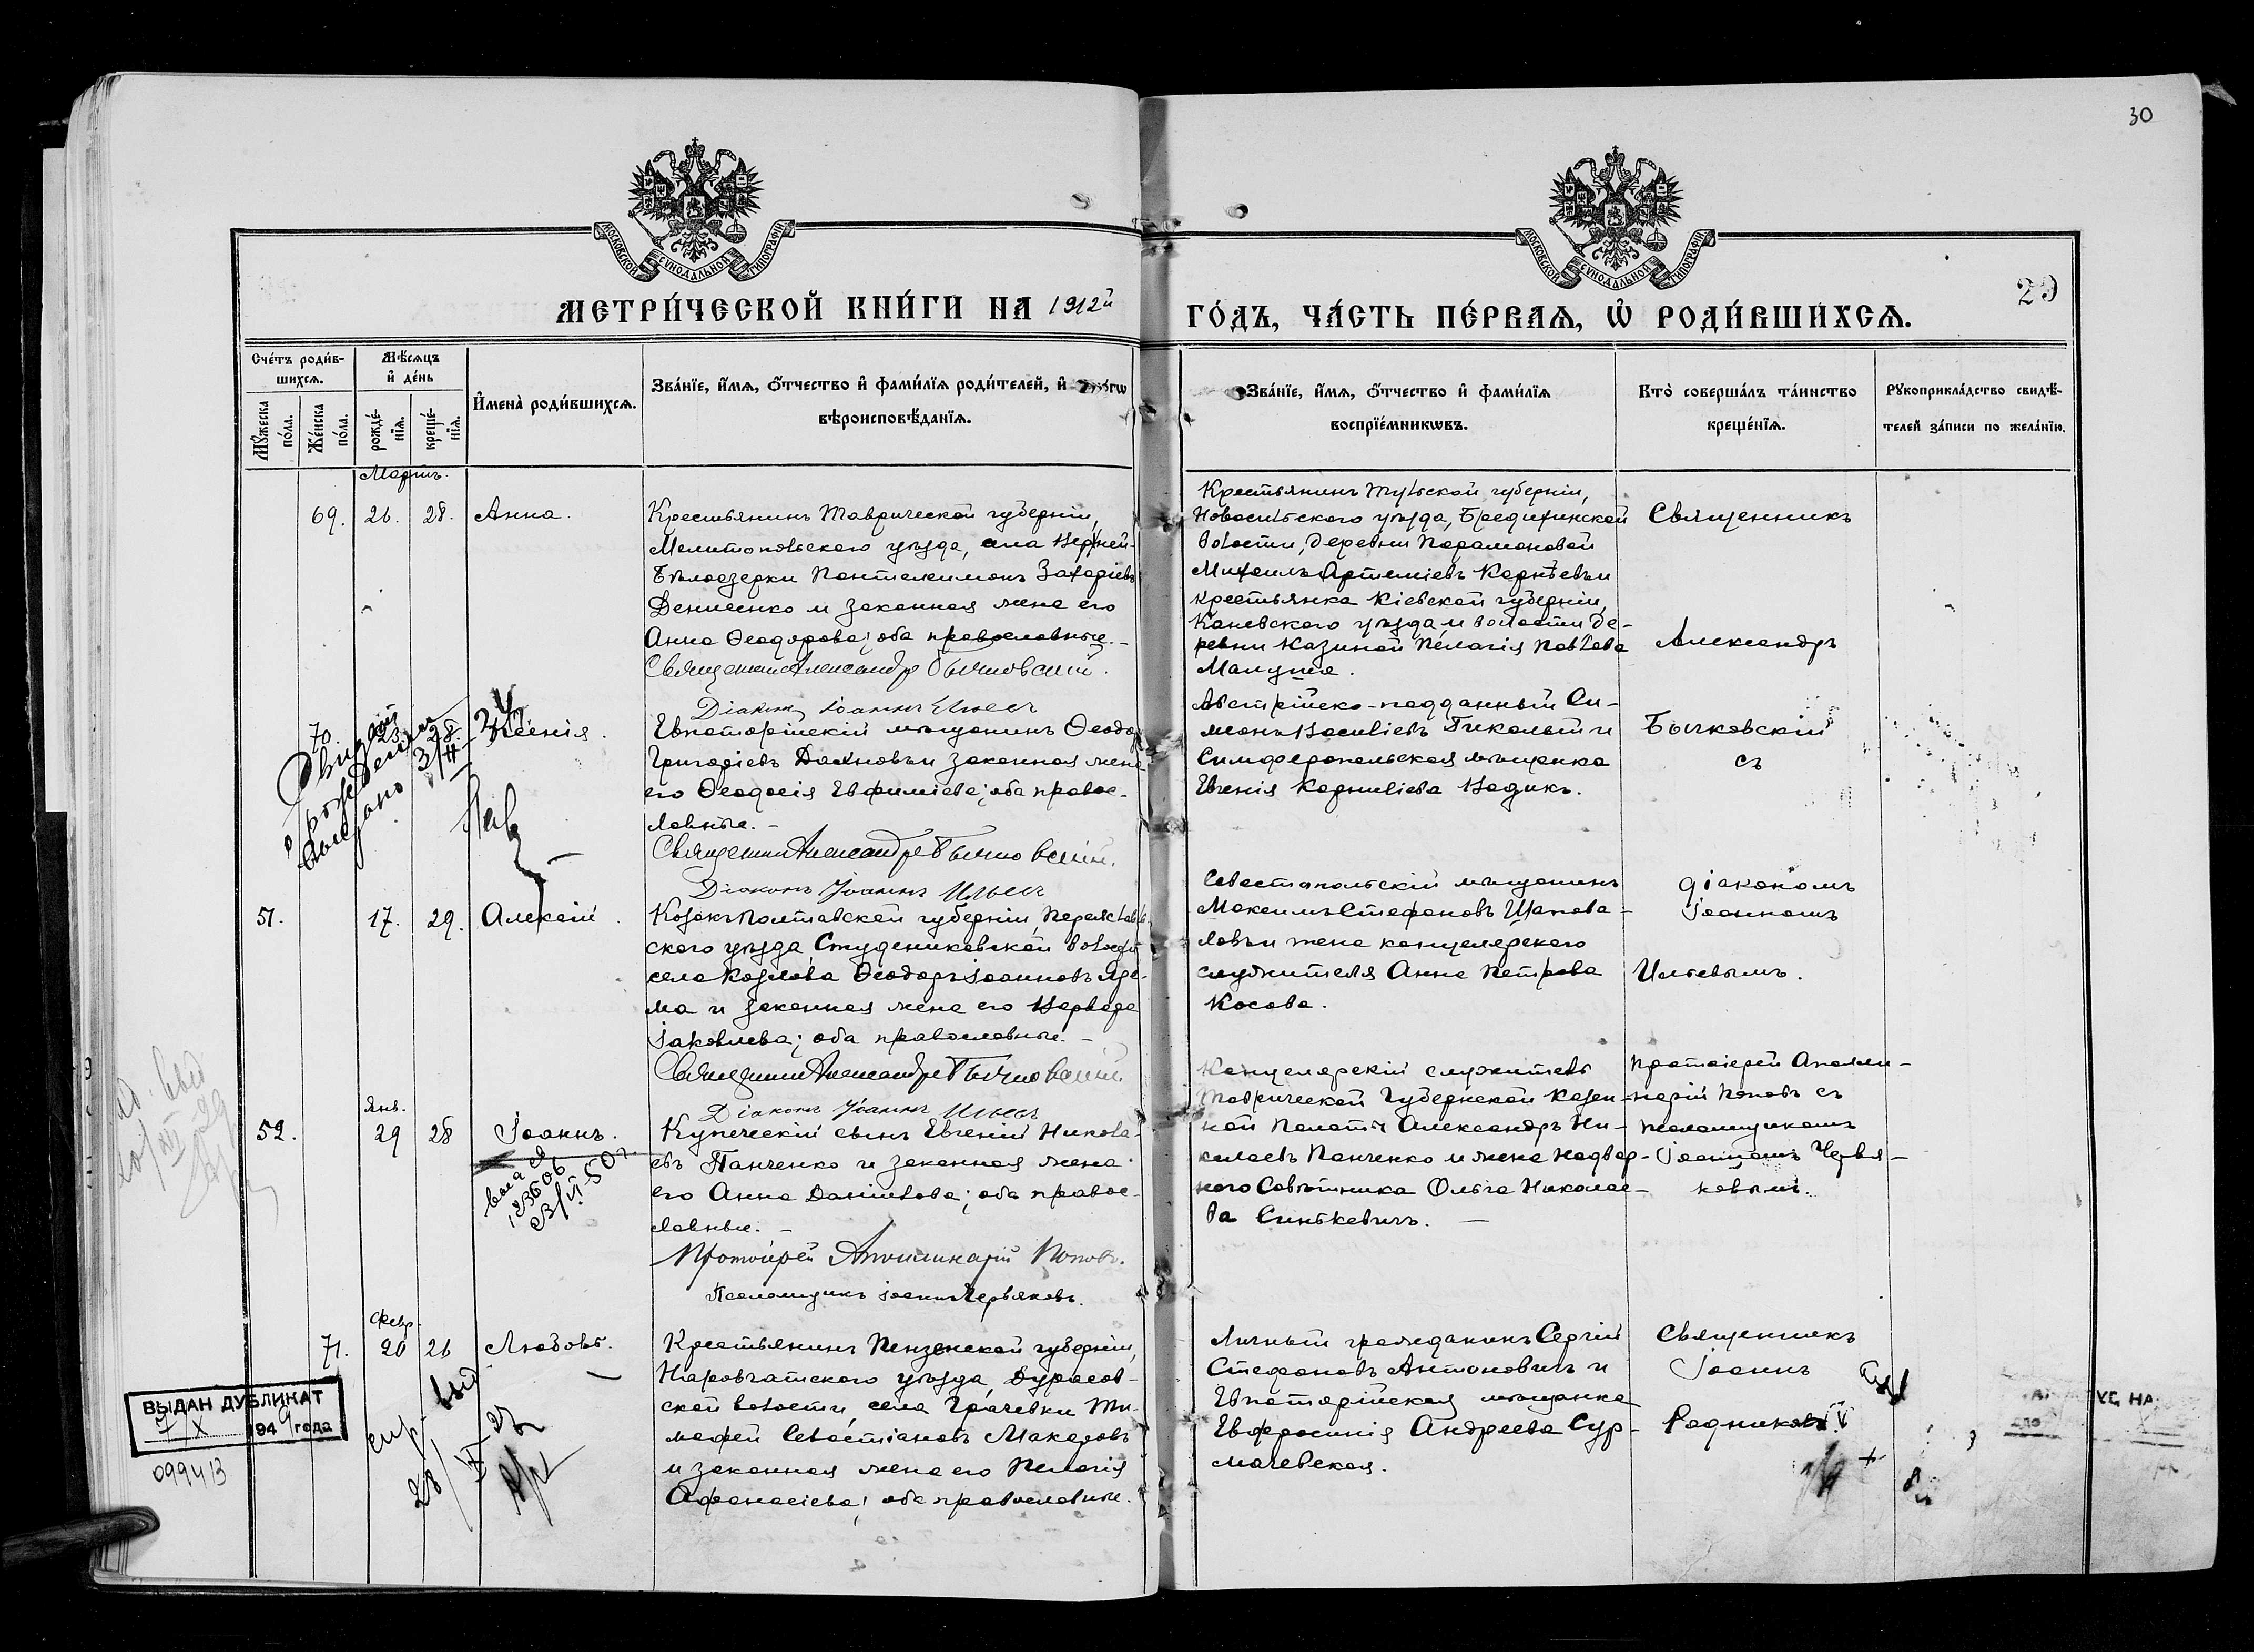 30
МОСКОВСКОЙ СѴНОДАЛЬНОЙ ТИПОГРАФІИ
МОСКОВСКОЙ СѴНОДАЛЬНОЙ ТИПОГРАФІИ
МЕТРИ́ЧЕСКОЙ КНИ́ГИ НА 1912й
ГО́ДЪ, ЧА́СТЬ ПЕ́РВАѦ, Ѡ҆ РОДИ́ВШИХСѦ.
29
Сче́тъ роди́в-
шихсѧ.
Мѣ́сѧцъ
и҆ де́нь
Мꙋ́жеска
по́ла.
Же́нска
по́ла.
рожде́-
нїѧ.
креще́-
нїѧ.
И҆мена̀ роди́вшихсѧ.
Зва́нїе, и҆́мѧ, ѻ҆́тчество и҆ фами́лїѧ роди́телей, и҆
вѣроисповѣ́данїѧ.
Зва́нїе, и҆́мѧ, ѻ҆́тчество и҆ фами́лїѧ
воспрїе́мникѡвъ.
Кто̀ соверша́лъ та́инство
креще́нїѧ.
Рꙋкоприкла́дство свидѣ́-
телей за́писи по жела́нїю.
Мартъ.
69. 26. 28. Анна.
Крестьянинъ Таврической губерніи,
Мелитопольскаго уѣзда, села Верхней-
Бѣлозерки Пантелеимонъ Захаріевъ
Денисенко и законная жена его
Анна Ѳеодорова; оба православные.-
Священникъ Александръ Бычковскій.
Діаконъ Іоаннъ Ильевъ
Крестьянинъ Тульской губерніи,
Новосильскаго уѣзда, Бредихинской
волости, деревни Парамоновой
Михаилъ Артеміевъ Карнѣевъ и
крестьянка Кіевской губерніи,
Каневскаго уѣзда и волости де-
ревни Казиной Пелагія Павлова
Священникъ
Александръ
70. 23. 28. Ксенія.
Евпаторійскій мѣщанинъ Ѳеодоръ
Григоріевъ Дахновъ и законная жена
его Ѳеодосія Евфиміева; оба право-
славные.-
Священникъ Александръ Бычковскій.
Діаконъ Іоаннъ Ильевъ
Австрійско-подданный Си-
меонъ Васильевъ Гикалъ и
Симферопольская мѣщанка
Евгенія Корнильева Вадикъ.
Бычковскій
съ
о рожденіи
выдано
51. 17. 29. Алексій.
Козакъ Полтавской губерніи, Переяслав-
скаго уѣзда, Студениковской волости
села Козлова Ѳеодоръ Іоанновъ Яре-
ма и законная жена его Варвара
Іаковлева; оба православные.-
Священникъ Александръ Бычковскій.
Діаконъ Іоаннъ Ильевъ
Севастопольскій мѣщанинъ
Максимъ Стефановъ Шапова-
ловъ и жена канцелярскаго
служителя Анна Петрова
Косова.
діакономъ
Іоанномъ
Ильевымъ.
Янв.
52. 29 28 Іоаннъ.
Купеческій сынъ Евгеній Никола-
евъ Панченко и законная жена
его Анна Даніилова; оба право-
славные.-
Протоіерей Аполлинарій Поповъ.
Псаломщикъ Іоаннъ Червяковъ.
Канцелярскій служитель
Таврической Губернской Казен-
ной Палаты Александръ Ни-
колаевъ Панченко и жена Надвор-
наго Совѣтника Ольга Николае-
ва Синькевичъ.-
Протоіерей Аполли-
нарій Поповъ съ
псаломщикомъ
Іоанномъ Червя-
ковымъ.
Февр.
71. 20 26 Любовь.
Крестьянинъ Пензенской губерніи,
Наровчатскаго уѣзда, Дурасов-
ской волости, села Грачевки Ти-
мофей Севастіановъ Макаровъ
и законная жена его Пелагія
Аѳанасіева; оба православные.
Личный гражданинъ Сергій
Стефановъ Антоновичъ и
Евпаторійская мѣщанка
Евфросинія Андреева Сур-
мачевская.
Священникъ
Іоаннъ
Родниковъ
ВЫДАН ДУБЛИКАТ
7/X 1949 года
099413